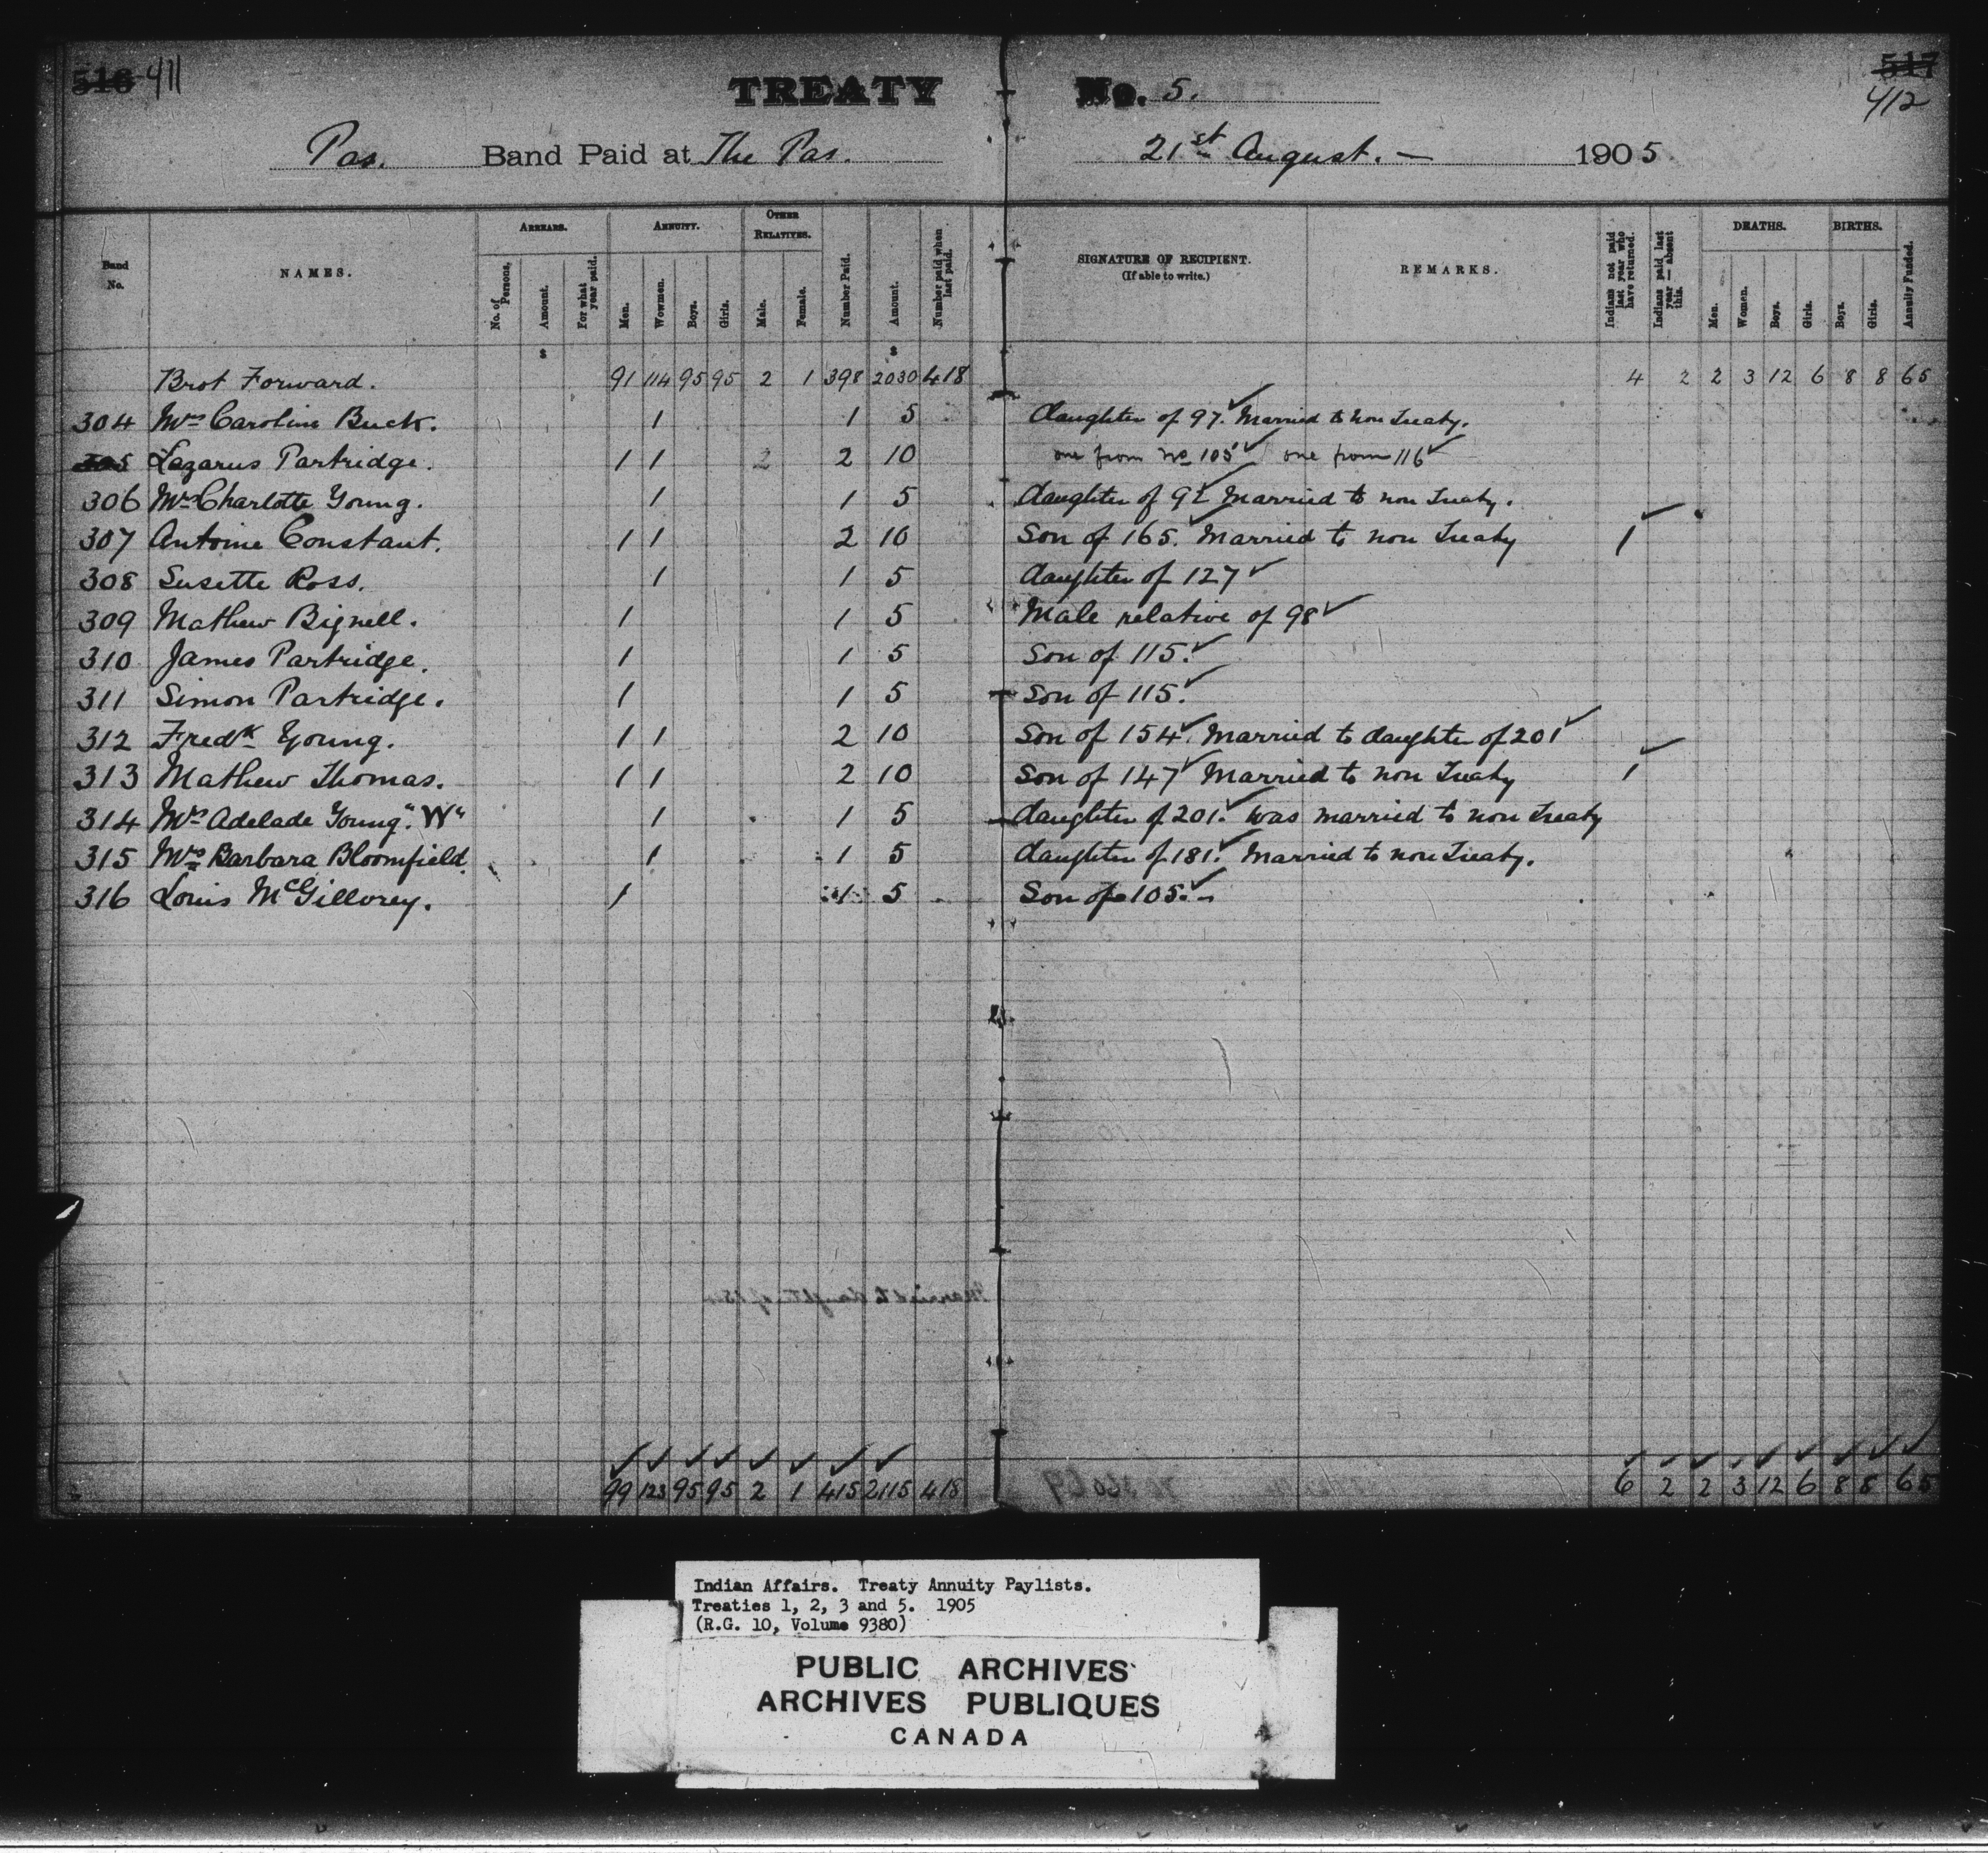 516 411
TREATY No. 5.
517
412
Pas. Band Paid at The Pas. 21st August. — 1905
Band No.
NAMES.
ARREARS.
No. of Persons.
Amount.
For what year paid.
ANNUITY.
Men.
Women.
Boys.
Girls.
OTHER RELATIVES.
Male.
Female.
Number Paid.
Amount.
Number paid when last paid.
SIGNATURE OF RECIPIENT.
(If able to write.)
REMARKS.
Indians not paid last year who have returned.
Indians paid last year — absent this.
DEATHS.
Men.
Women.
Boys.
Girls.
BIRTHS.
Boys.
Girls.
Annuity Funded.
$ $
Brot Forward. 91 114 95 95 2 1 398 2030 418 4 2 2 3 12 6 8 8 65
304 Mrs Caroline Buck. 1 1 5 daughter of 97. Married to non Treaty.
305 Lazarus Partridge. 1 1 2 2 10 one from No 105 one from 116
306 Mrs Charlotte Young. 1 1 5 daughter of 92 Married to non Treaty.
307 Antoine Constant. 1 1 2 10 Son of 165. Married to non Treaty 1
308 Susette Ross. 1 1 5 daughter of 127
309 Mathew Bignell. 1 1 5 Male relative of 98
310 James Partridge. 1 1 5 Son of 115.
311 Simon Partridge. 1 1 5 Son of 115.
312 Fredk Young. 1 1 2 10 Son of 154. Married to daughter of 201
313 Mathew Thomas. 1 1 2 10 Son of 147 Married to non Treaty 1
314 Mrs Adelade Young. "W" 1 1 5 daughter of 201. Was married to non Treaty
315 Mrs Barbara Bloomfield. 1 1 5 daughter of 181. Married to non Treaty.
316 Louis McGillvrey. 1 1 5 Son of 105. -
99 123 95 95 2 1 415 2115 418 6 2 2 3 12 6 8 8 65
Indian Affairs. Treaty Annuity Paylists.
Treaties 1, 2, 3 and 5. 1905
(R.G. 10, Volume 9380)
PUBLIC ARCHIVES
ARCHIVES PUBLIQUES
CANADA